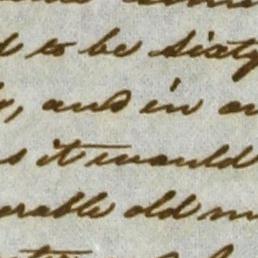 d to be sixty
, and in a
s it would
erable old m